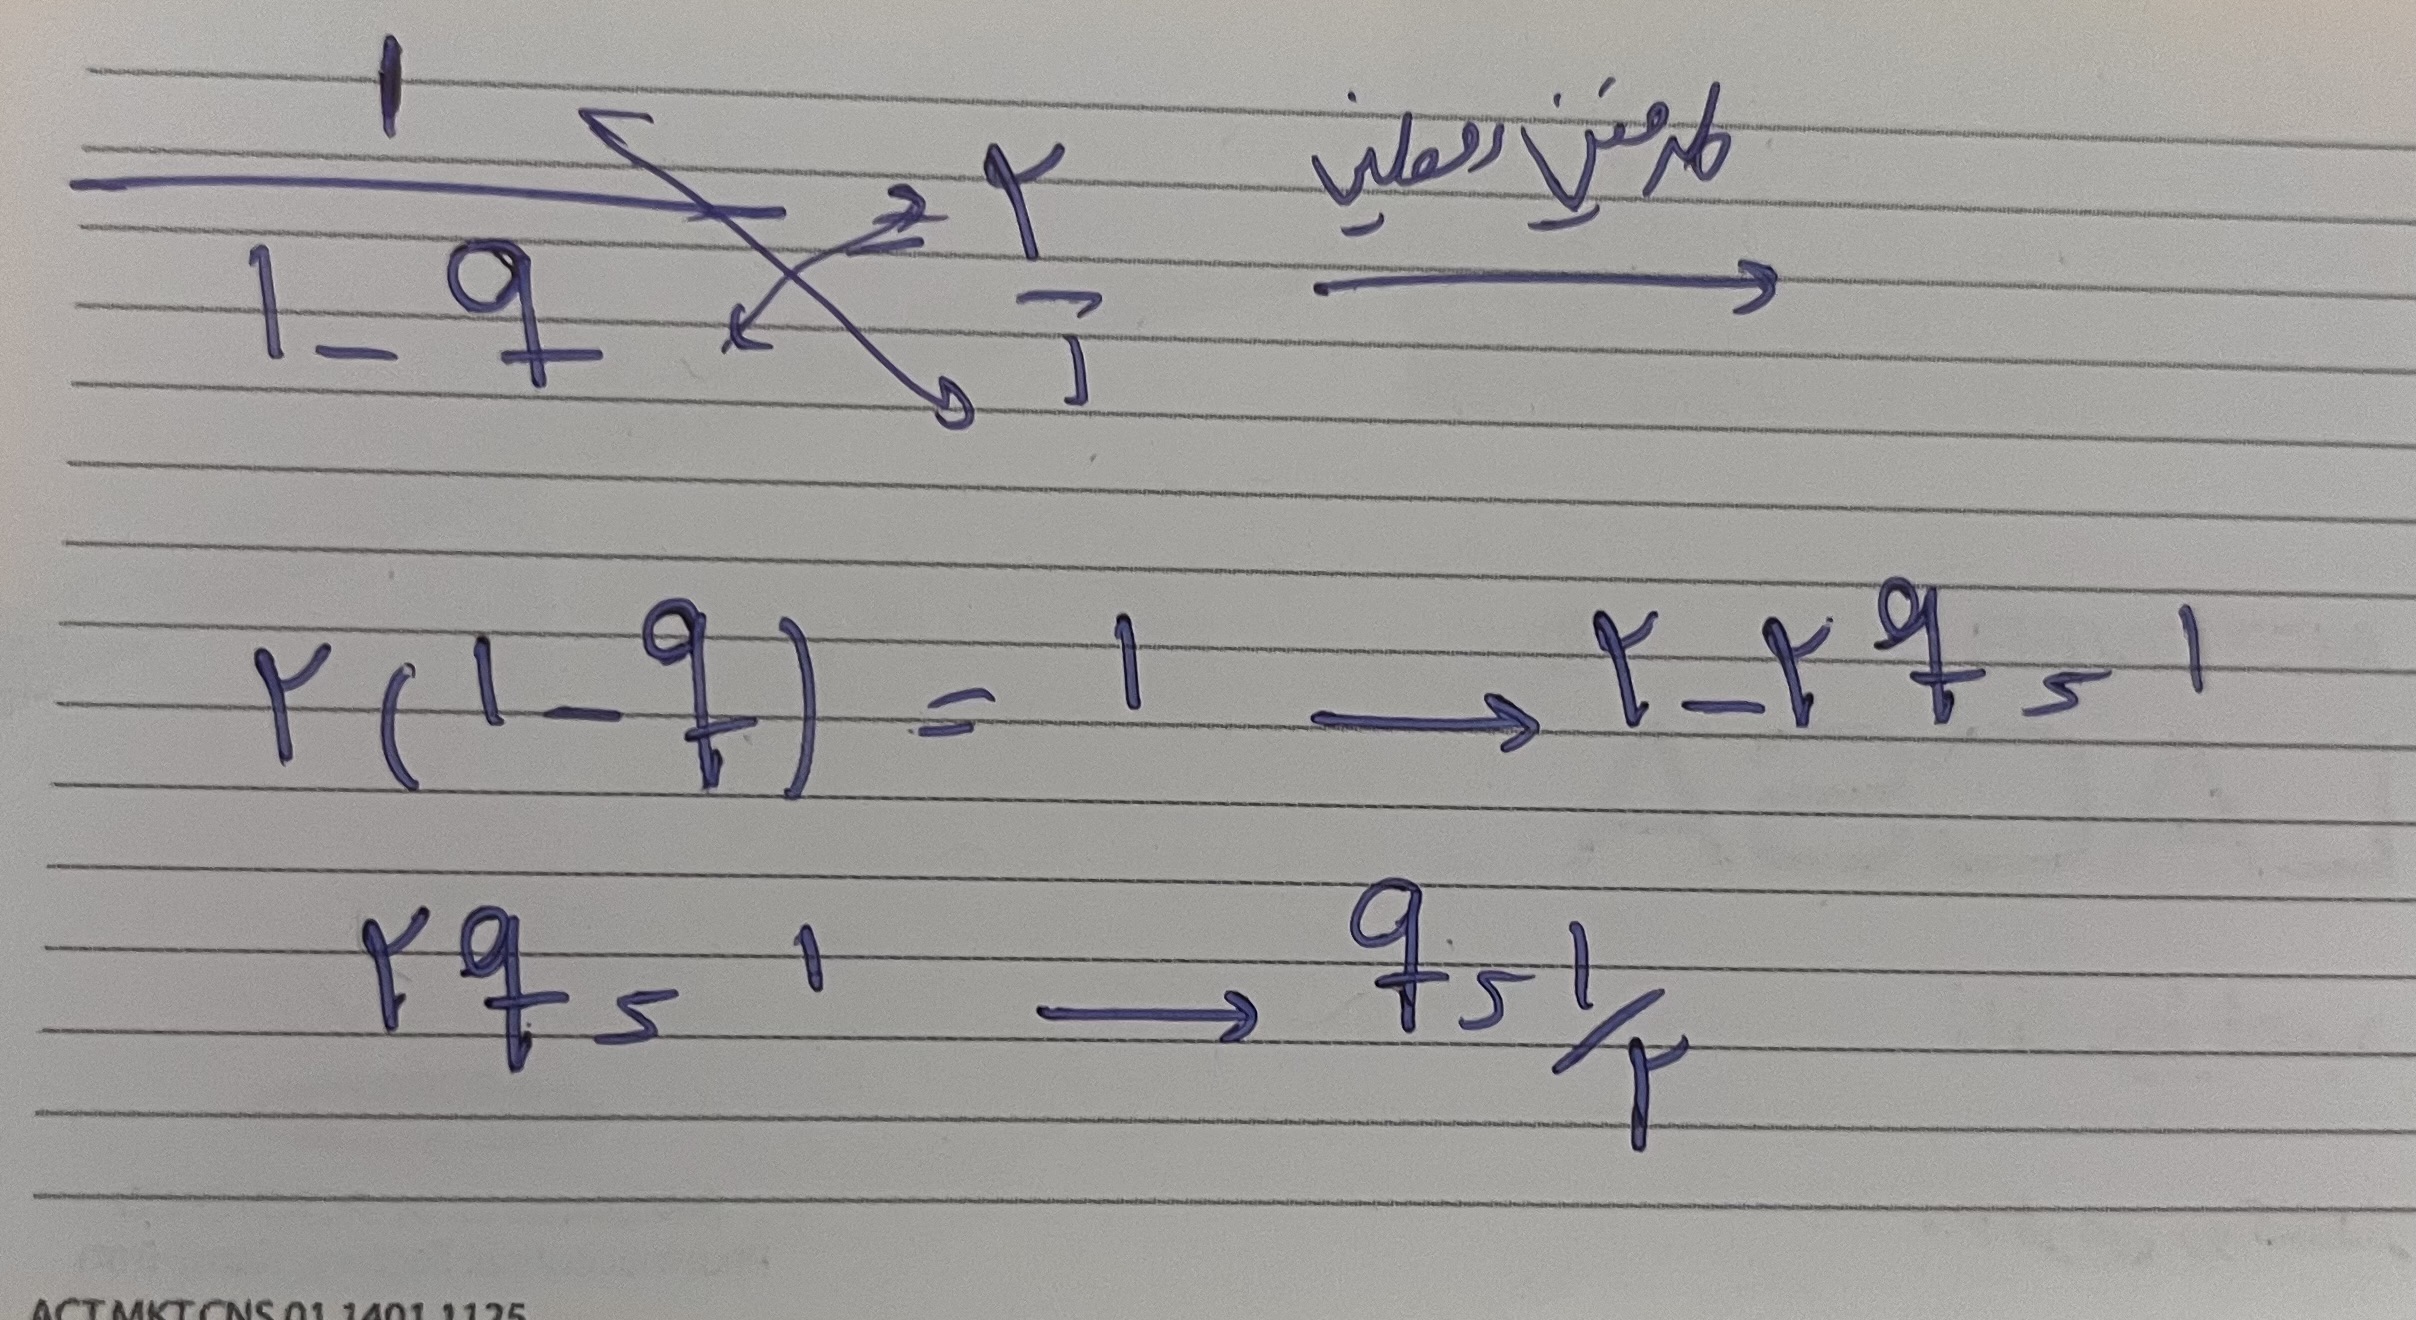 ۱/(۱ - q) = ۲/۱ طرفین وسطین →
۲(۱ - q) = ۱ → ۲ - ۲q = ۱
۲q = ۱ → q = ۱/۲
ACT.MKT.CNS.01.1401.1125